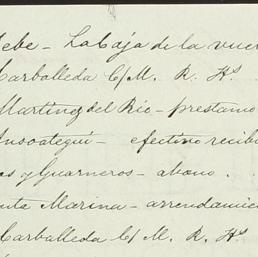 Debe - La Caja de la vuer
Carballeda C/M. R. Hs.
Martinez del Rio - prestamo
Ansoategui - efectivo recibi
es y Guarneros - abono .
nta Marina - arrendamie
Carballeda C/ M. R. Hs.